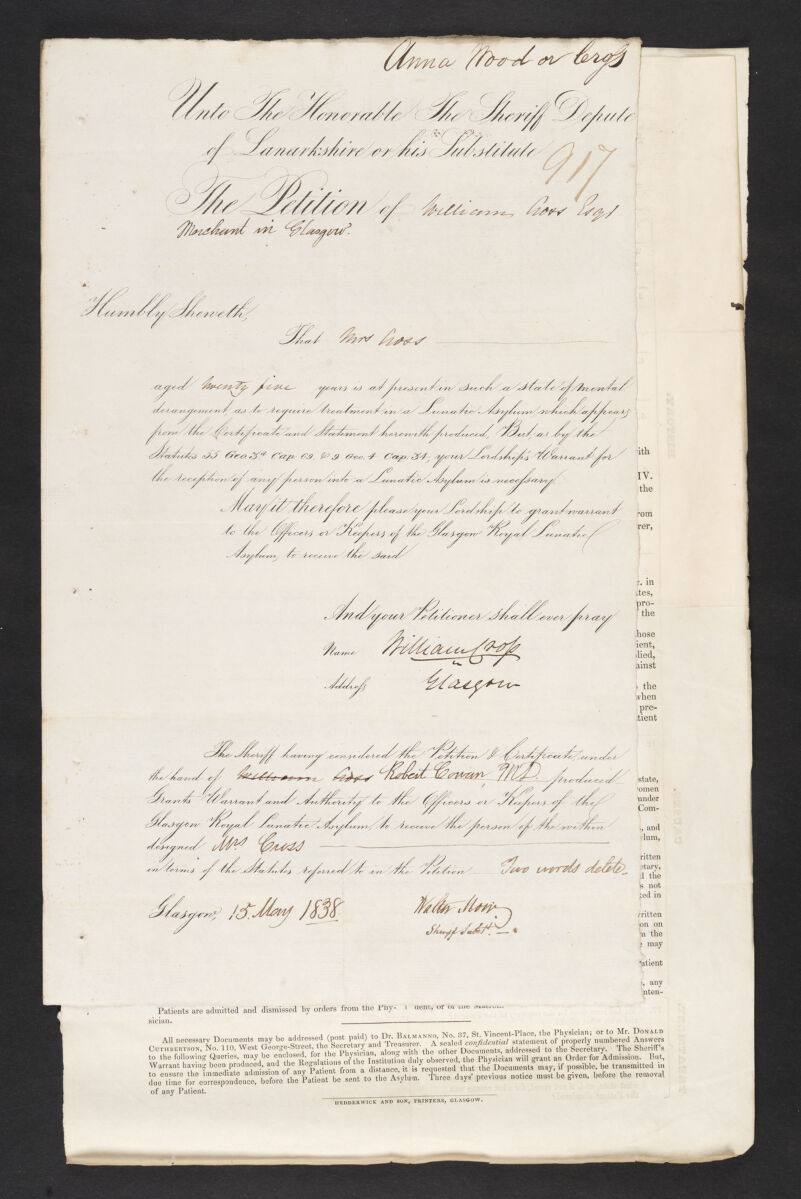 Anna Wood or Cross
Unto The Honorable The Sheriff Depute
of Lanarkshire or his Substitute
917
The Petition of William Cross Esqr
Merchant in Glasgow.
Humbly Sheweth,
That Mrs Cross
aged twenty five years is at present in such a state of mental
derangement, as to require treatment in a Lunatic Asylum, which appears
from the Certificate and Statement herewith produced, But, as by the
Statutes 55 Geo 3d Cap. 69. & 9 Geo. 4 Cap. 34, your Lordship's Warrant for
the reception of any person into a Lunatic Asylum is necessary
May it therefore please your Lordship to grant warrant
to the Officers or Keepers of the Glasgow Royal Lunatic
Asylum, to receive the said
And your Petitioner shall ever pray
Name William Cross
Address Glasgow
The Sheriff having considered the Petition & Certificate, under
the hand of William Cross Robert Cowan, M.D. produced
Grants Warrant and Authority to the Officers or Keepers of the
Glasgow Royal Lunatic Asylum, to receive the person of the within
designed Mrs. Cross
in terms of the Statutes referred to in the Petition Two words delete_
Glasgow, 15. May 1838
Walter Moir
Sheriff Subst.
ith
IV.
the
rom
rer,
. in
tes,
pro-
the
hose
ient,
lied,
ainst
the
when
pre-
tient
state,
omen
under
Com-
, and
lum,
ritten
etary,
d the
s not
ted in
written
on on
n the
e may
Patient
, any
nten-
Patients are admitted and dismissed by orders from the Phy-
sician.
dent, or of the Matron.
All necessary Documents may be addressed (post paid) to Dr. BALMANNO, No. 37, St. Vincent-Place, the Physician; or to Mr. DONALD
CUTHBERTSON, No. 110, West George-Street, the Secretary and Treasurer. A sealed confidential statement of properly numbered Answers
to the following Queries, may be enclosed, for the Physician, along with the other Documents, addressed to the Secretary. The Sheriff's
Warrant having been produced, and the Regulations of the Institution duly observed, the Physician will grant an Order for Admission. But,
to ensure the immediate admission of any Patient from a distance, it is requested that the Documents may, if possible, be transmitted in
due time for correspondence, before the Patient be sent to the Asylum. Three days' previous notice must be given, before the removal
of any Patient.
HEDDERWICK AND SON, PRINTERS, GLASGOW.